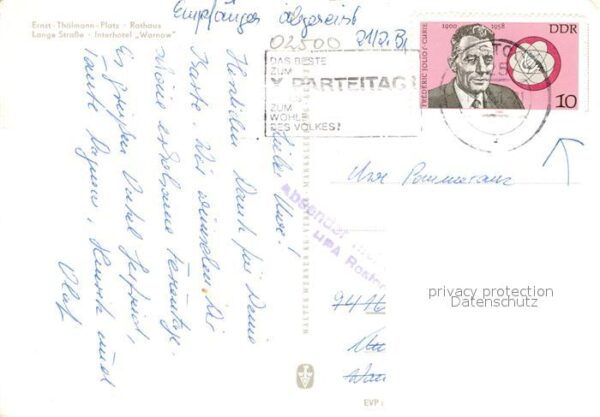 Ernst-Thälmann-Platz · Rathaus
Lange Straße · Interhotel „Warnow"
Empfänger abgereist
02500 21/2.81
DAS BESTE
ZUM
X PARTEITAG!
ZUM
WOHLE
DES VOLKES!
FRÉDÉRIC JOLIOT-CURIE
1900 1958
DDR
10
Lieber Uwe!
Herzlichen Dank für Deine
Karte. Wir wünschen Dir
schöne erholsame Ferientage.
Es grüßen Onkel Seefried,
Tante Dagmar, Henrik und
Olaf
Uwe Pommeranz
Absender
HPA Rostock
9416
privacy protection
Datenschutz
EVP